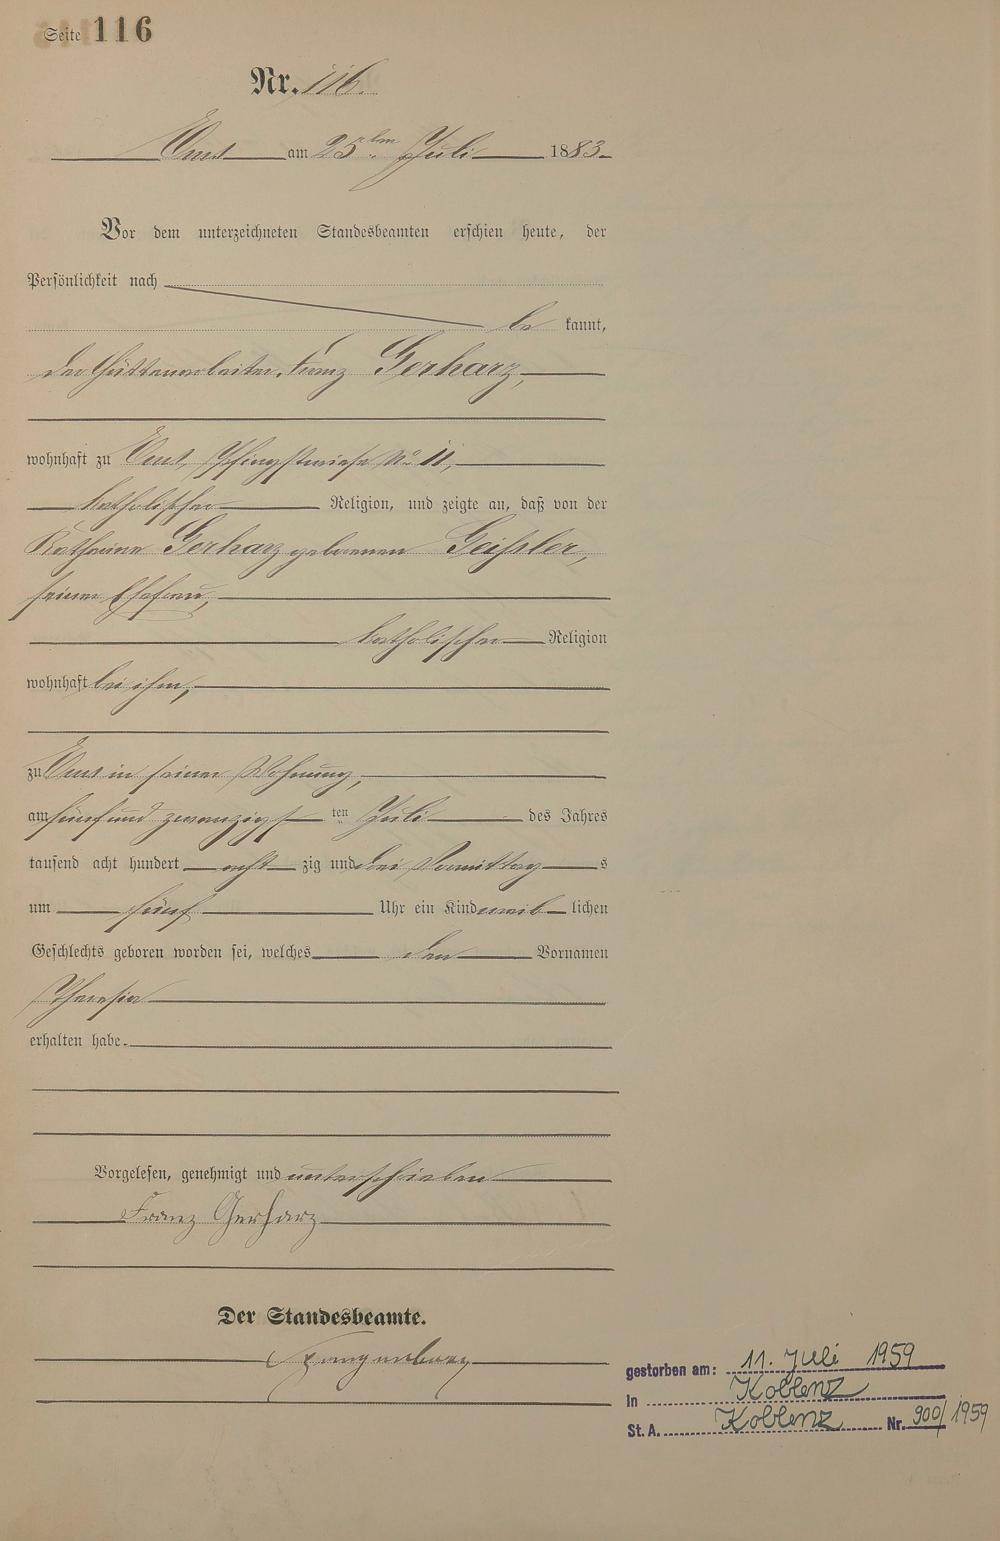 Seite 116
Nr. 116.
Ems am 25ten Juli 1883.
Vor dem unterzeichneten Standesbeamten erschien heute, der
Persönlichkeit nach
be kannt,
der Hüttenarbeiter Franz Gerharz,
wohnhaft zu Ems, Pfingstwiese No 11,
katholischer Religion, und zeigte an, daß von der
Katharina Gerharz geborenen Geißler,
seiner Ehefrau,
katholischer Religion
wohnhaft bei ihm,
zu Ems in seiner Wohnung,
am fünfundzwanzigsten ten Juli des Jahres
tausend acht hundert acht zig und drei Vormittag s
um fünf Uhr ein Kind weib lichen
Geschlechts geboren worden sei, welches den Vornamen
Theresia
erhalten habe.
Vorgelesen, genehmigt und unterschrieben
Franz Gerharz
Der Standesbeamte.
Spangenberg
gestorben am: 11. Juli 1959
in Koblenz
St. A. Koblenz Nr. 900/1959